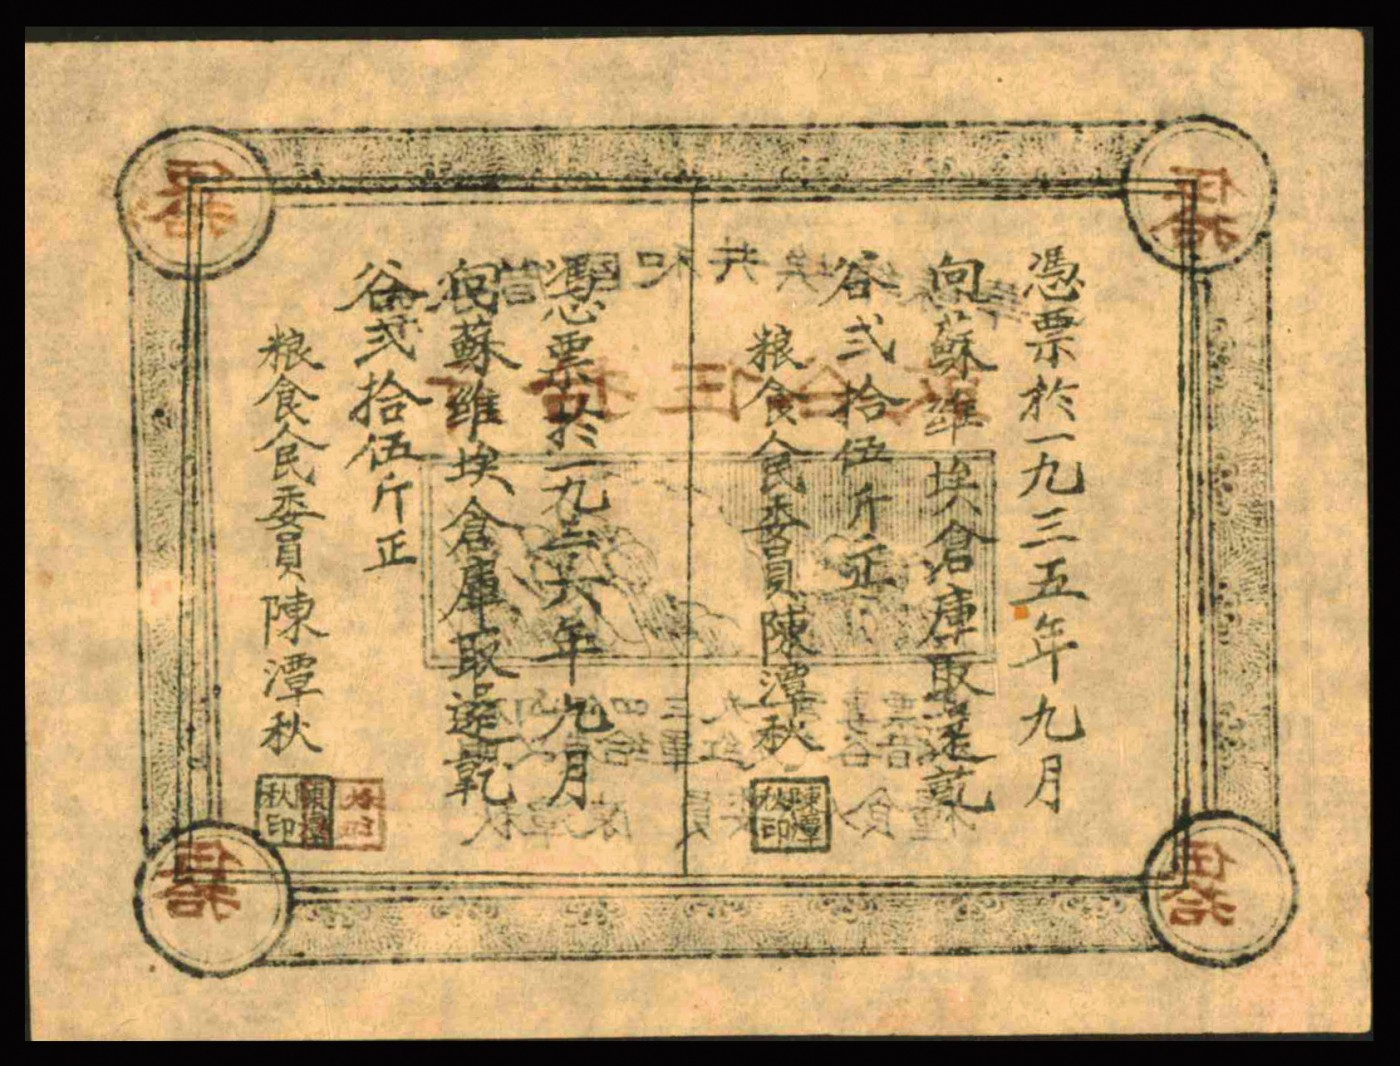 憑票於一九三五年九月
向蘇維埃倉庫取還乾
谷弍拾伍斤正
粮食人民委員陳潭秋
陳潭秋印
憑票於一九三六年九月
向蘇維埃倉庫取還乾
谷弍拾伍斤正
粮食人民委員陳潭秋
陳潭秋印
伍拾
伍拾
伍拾
伍拾